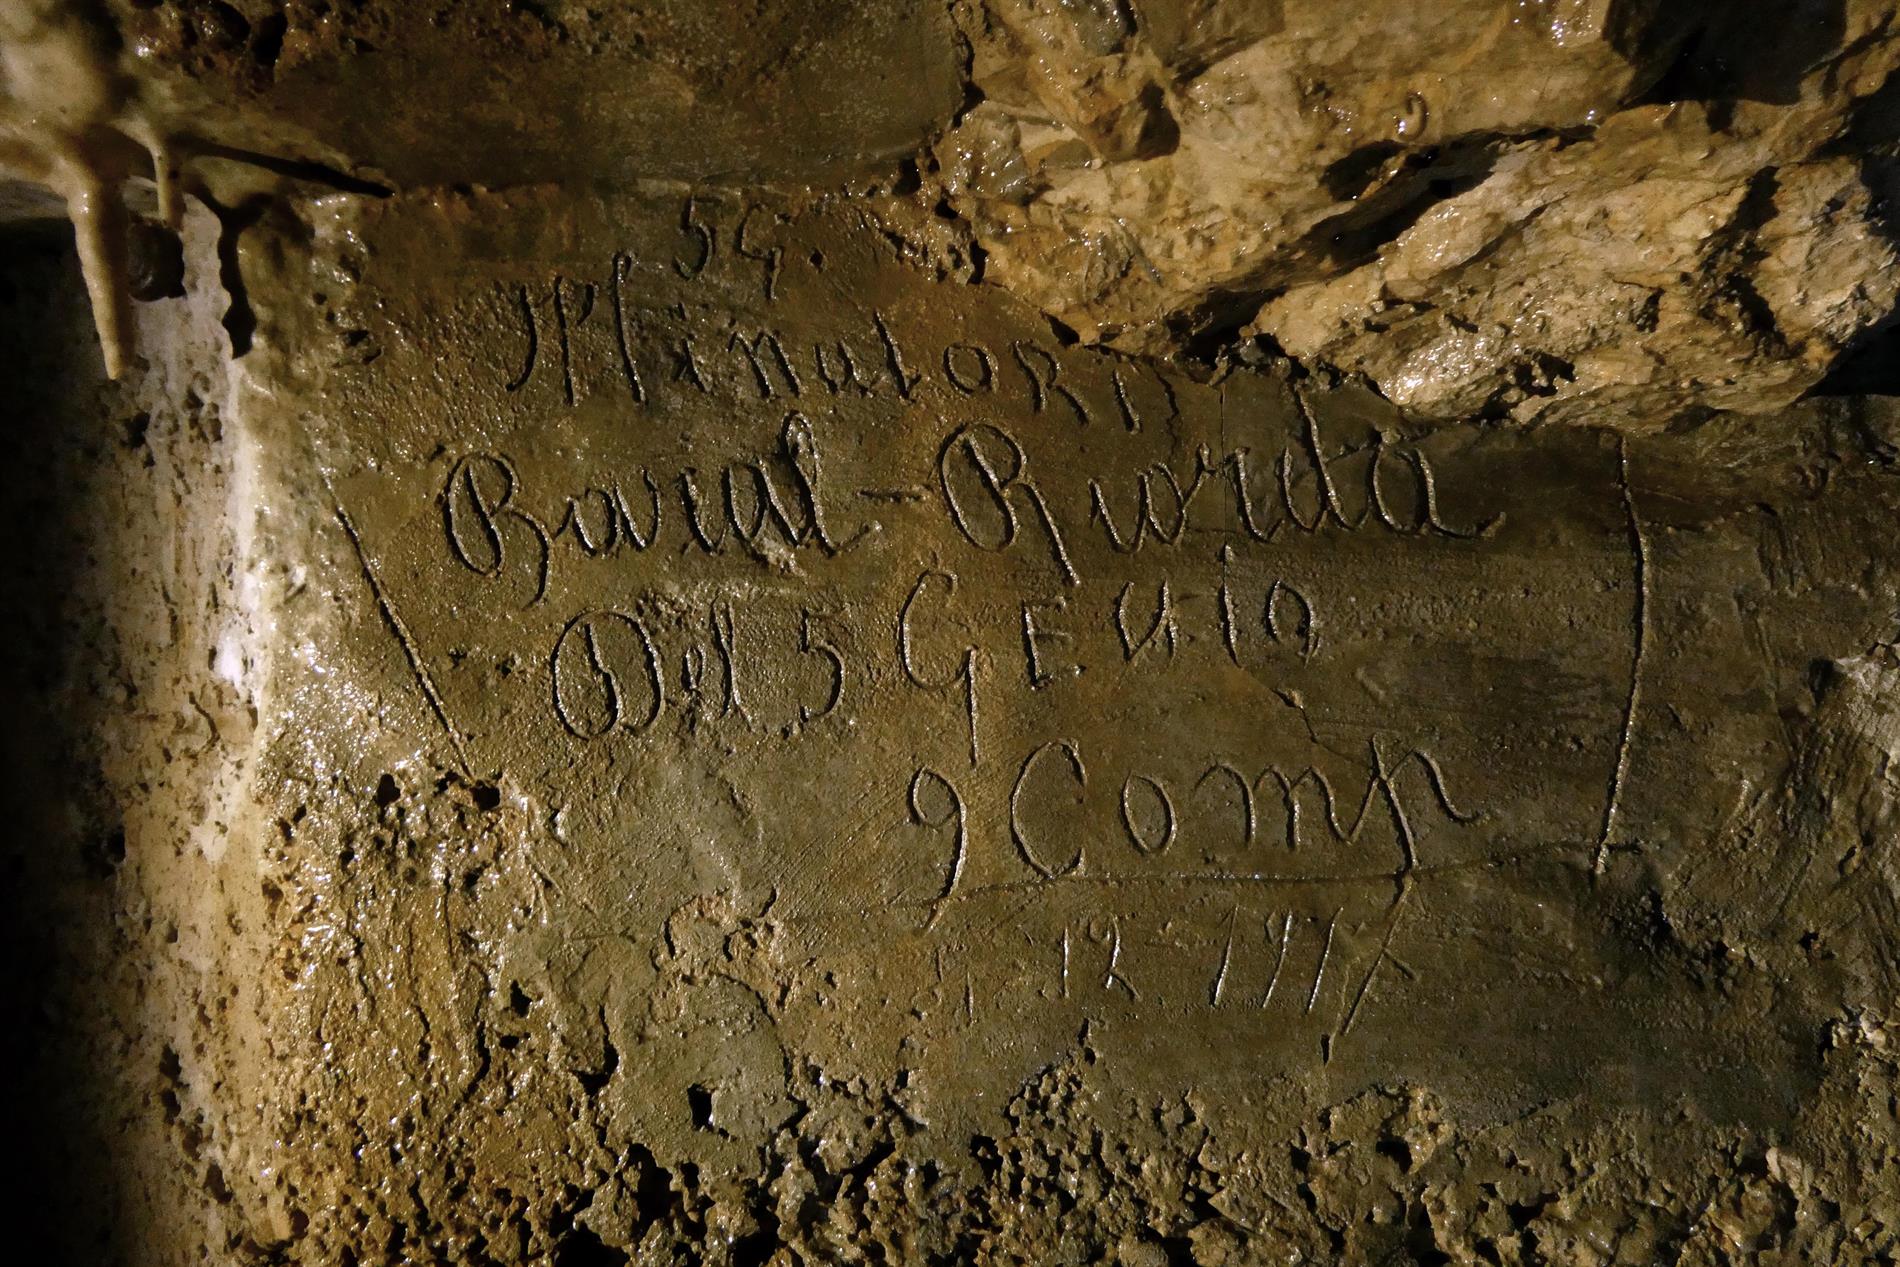 5 G.
Minatori
Boval - Rivorda
Del 5 Genio
9 Comp
12 - 1917